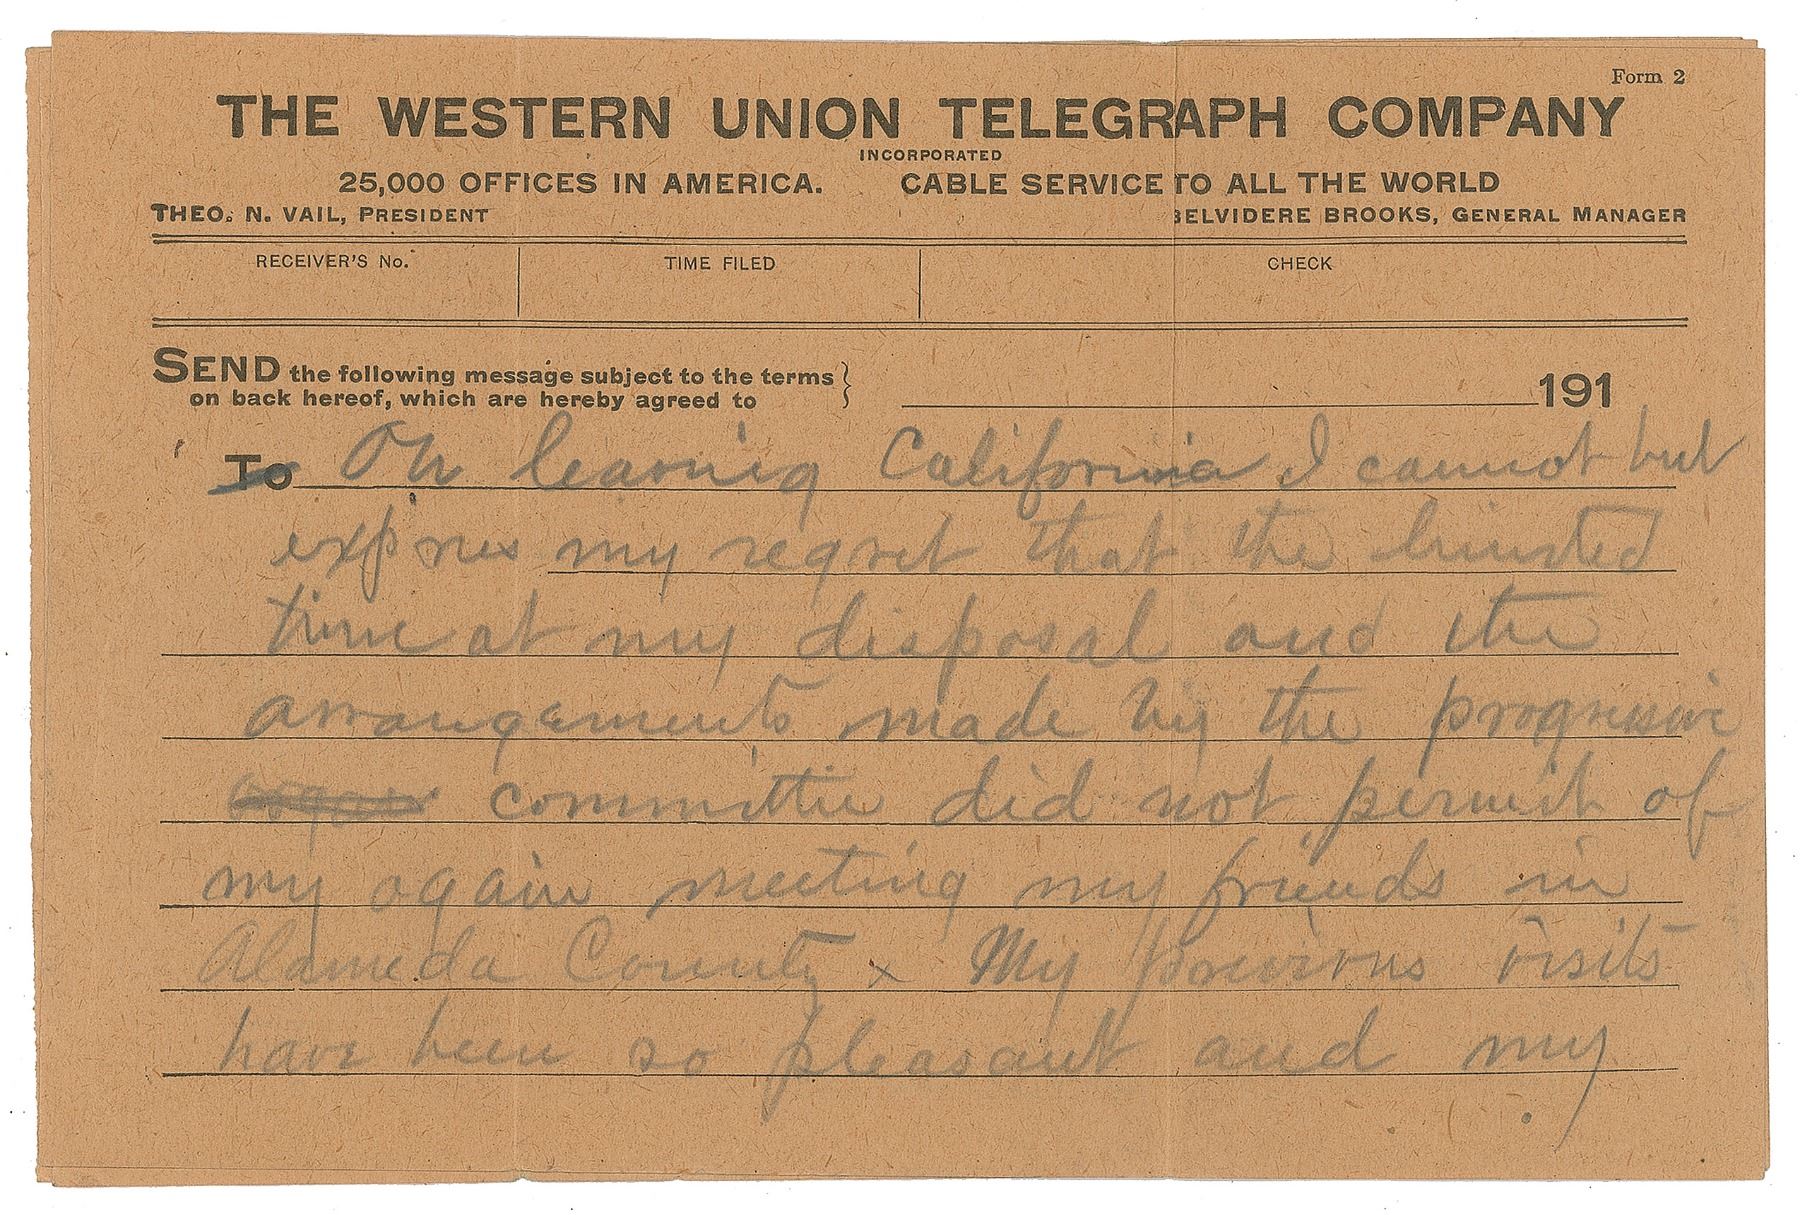 Form 2
THE WESTERN UNION TELEGRAPH COMPANY
INCORPORATED
25,000 OFFICES IN AMERICA. CABLE SERVICE TO ALL THE WORLD
THEO. N. VAIL, PRESIDENT BELVIDERE BROOKS, GENERAL MANAGER
RECEIVER'S No. TIME FILED CHECK
SEND the following message subject to the terms
on back hereof, which are hereby agreed to
191
To On leaving California I cannot but
express my regret that the limited
time at my disposal and the
arrangements made by the progressive
committee did not permit of
my again meeting my friends in
Alameda County x My previous visits
have been so pleasant and my